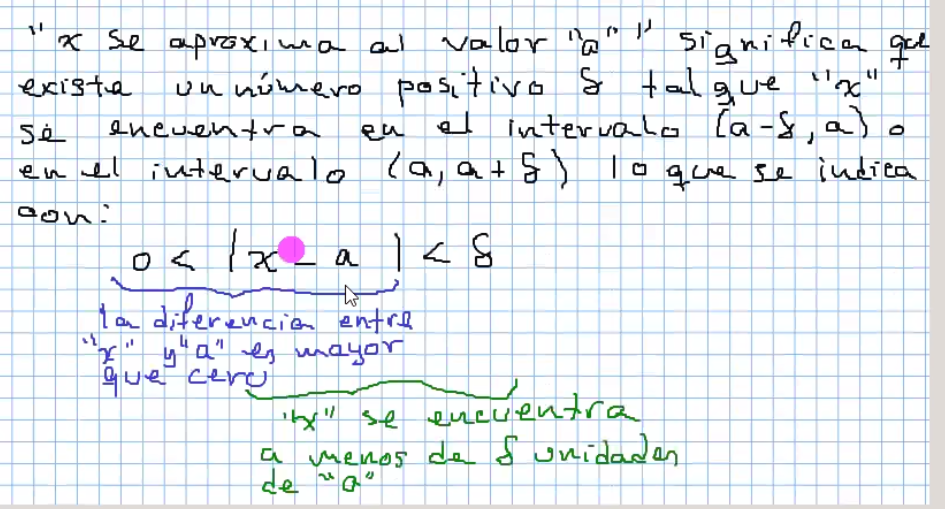 "x se aproxima al valor "a"" significa que
existe un número positivo δ tal que "x"
se encuentra en el intervalo (a-δ, a) o
en el intervalo (a, a+δ) lo que se indica
con:
0 < |x - a| < δ
la diferencia entre
"x" y "a" es mayor
que cero
"x" se encuentra
a menos de δ unidades
de "a"